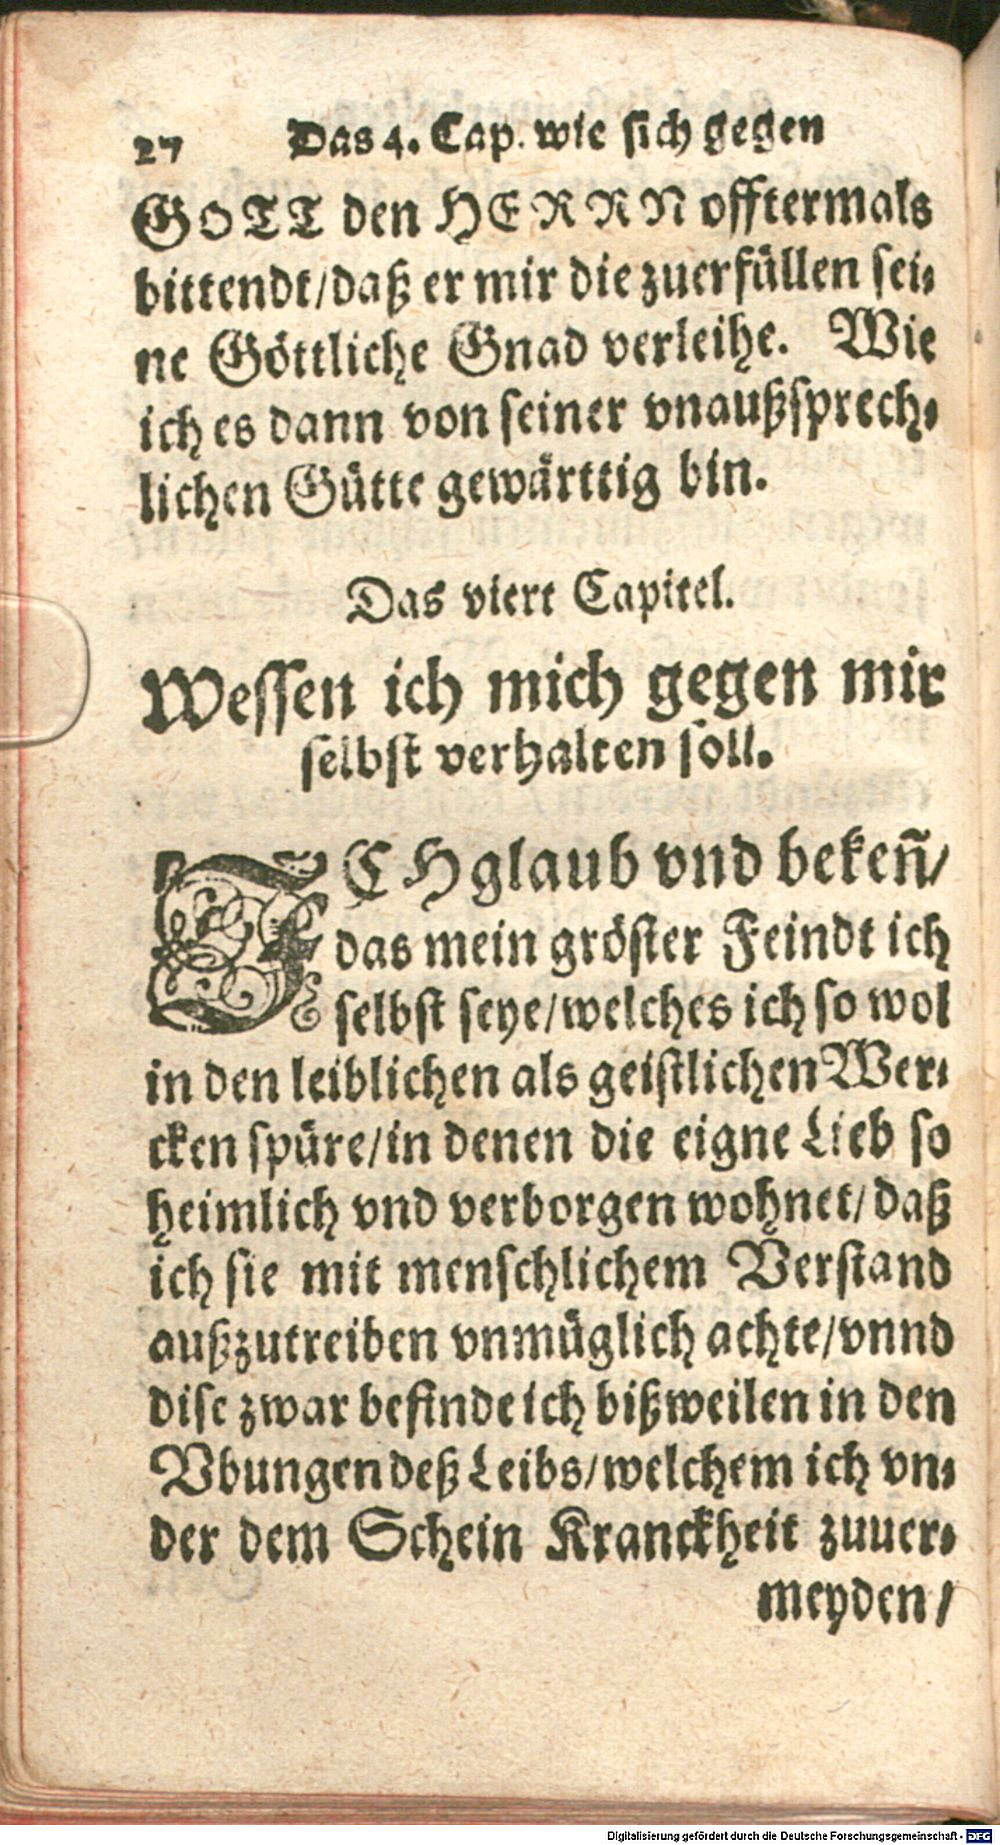 27 Das 4. Cap. wie sich gegen
GOTT den HERRN offtermals
bittendt/daß er mir die zuerfüllen sei-
ne Göttliche Gnad verleihe. Wie
ich es dann von seiner vnaußsprech-
lichen Gütte gewärttig bin.
Das viert Capitel.
Wessen ich mich gegen mir
selbst verhalten soll.
ICH glaub vnd bekeñ/
das mein gröster Feindt ich
selbst seye/welches ich so wol
in den leiblichen als geistlichen Wer-
cken spüre/in denen die eigne Lieb so
heimlich vnd verborgen wohnet/daß
ich sie mit menschlichem Verstand
außzutreiben vnmüglich achte/vnnd
dise zwar befinde ich bißweilen in den
Vbungen deß Leibs/welchem ich vn-
der dem Schein Kranckheit zuuer-
meyden/
Digitalisierung gefördert durch die Deutsche Forschungsgemeinschaft - DFG